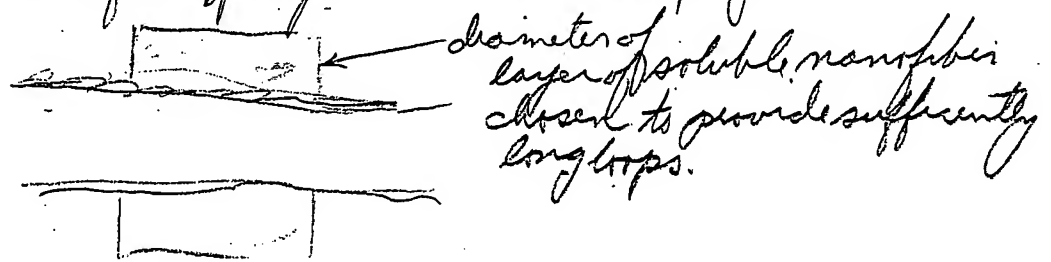 diameter of
layer of soluble nanofiber
chosen to provide sufficiently
long loops.